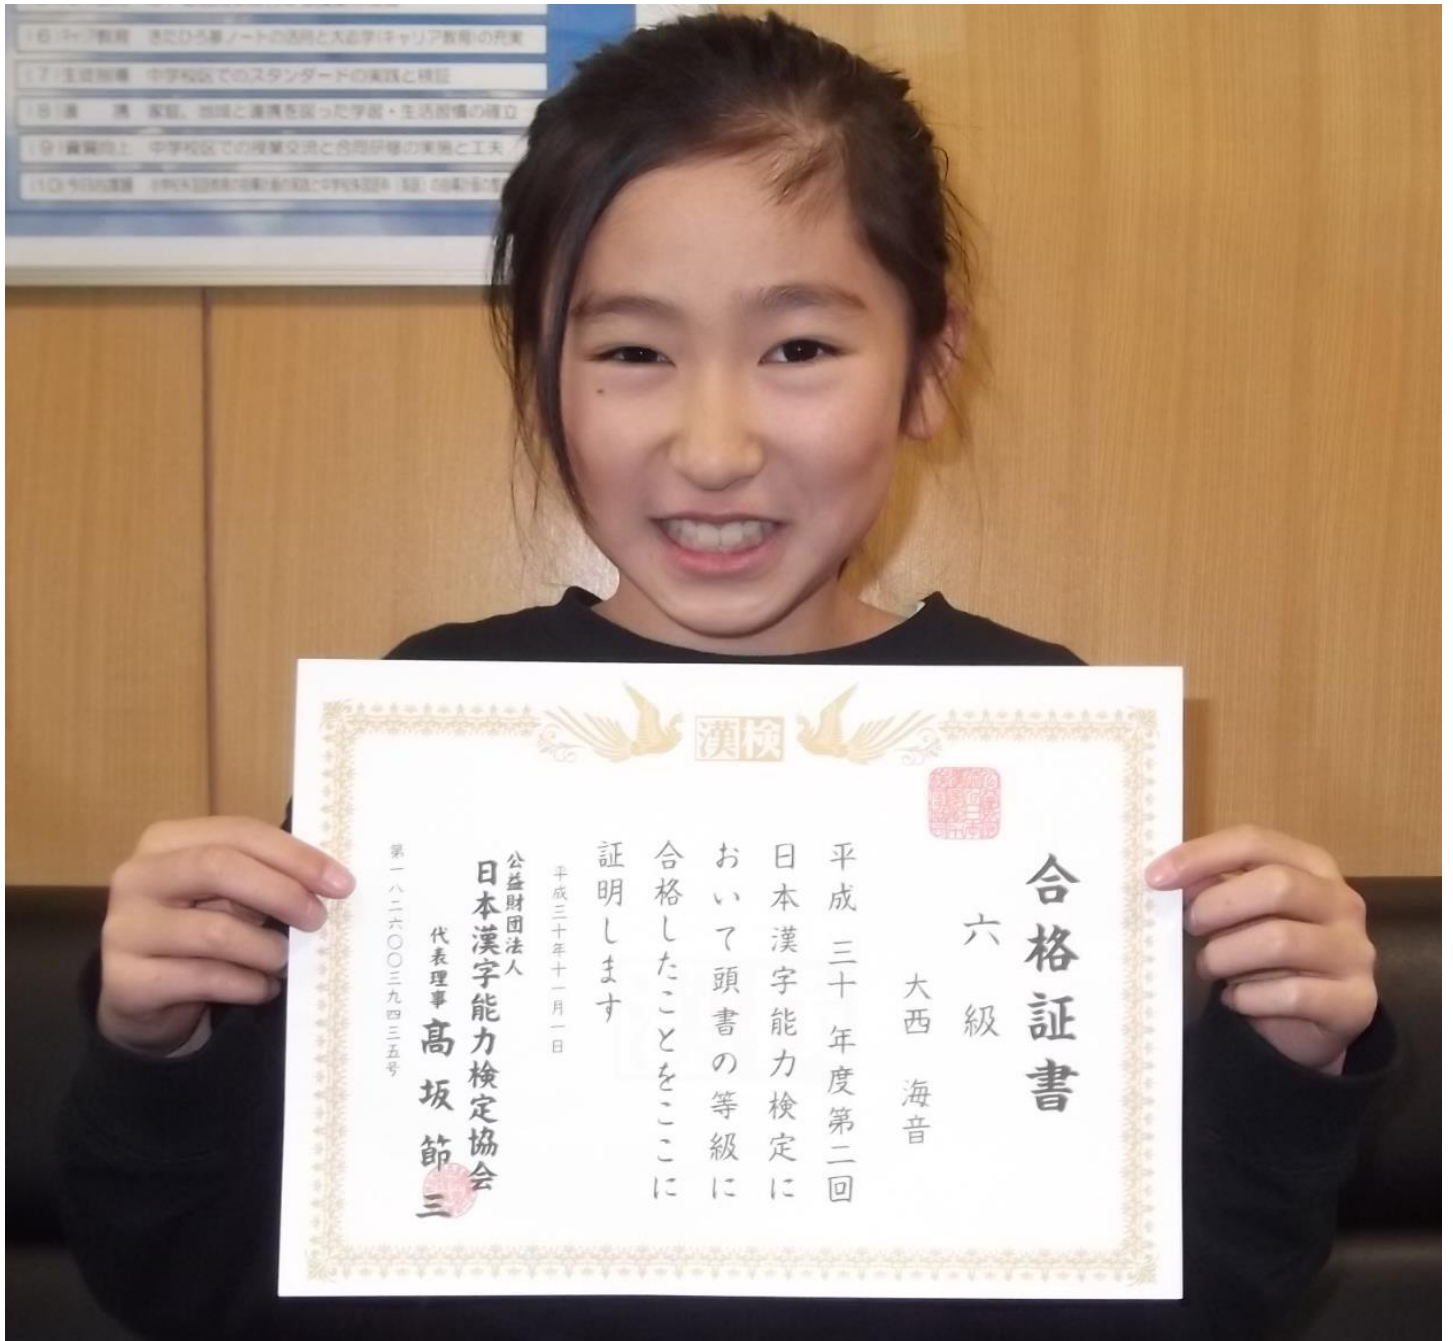 (6)キャリア教育 きたひろ夢ノートの活用と大志学(キャリア教育)の充実
(7)生徒指導 中学校区でのスタンダードの実践と検証
(8)連 携 家庭、地域と連携を図った学習・生活習慣の確立
(9)資質向上 中学校区での授業交流と合同研修の実施と工夫
(10)今日的課題
漢検
合格証書
六級
大西 海音
平成 三十 年度第二回
日本漢字能力検定に
おいて頭書の等級に
合格したことをここに
証明します
平成三十年十一月一日
公益財団法人
日本漢字能力検定協会
代表理事 髙坂節三
第一八二六〇〇三九四三五号